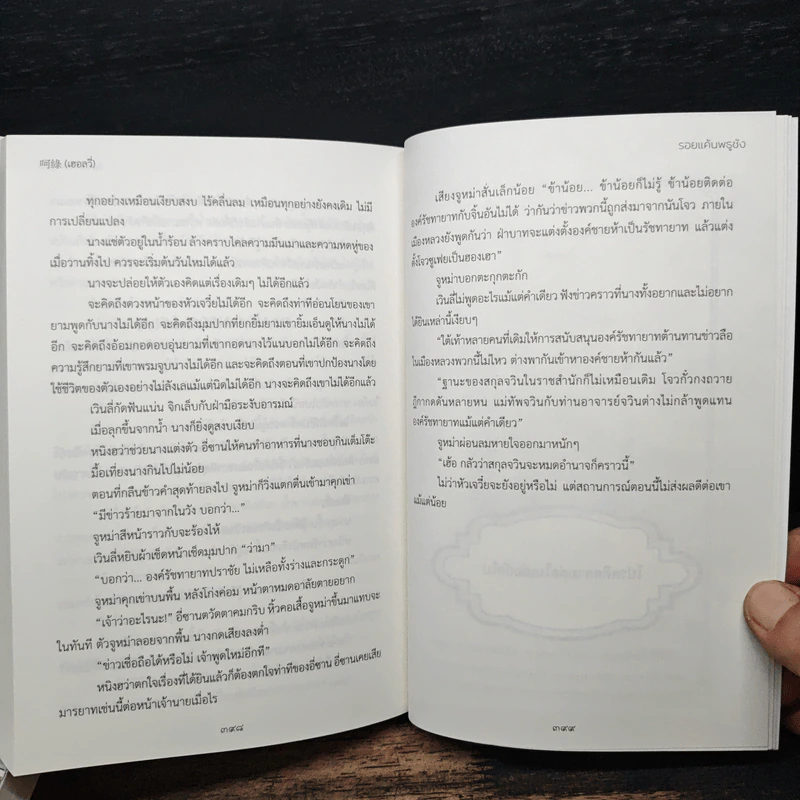 呵綠 (เฮอลวี่)
ทุกอย่างเหมือนเงียบสงบ ไร้คลื่นลม เหมือนทุกอย่างยังคงเดิม ไม่มี
การเปลี่ยนแปลง
นางแช่ตัวอยู่ในน้ำร้อน ล้างคราบไคลความมึนเมาและความหดหู่ของ
เมื่อวานทิ้งไป ควรจะเริ่มต้นวันใหม่ได้แล้ว
นางจะปล่อยให้ตัวเองคิดแต่เรื่องเดิมๆ ไม่ได้อีกแล้ว
จะคิดถึงดวงหน้าของหัวเจวี๋ยไม่ได้อีก จะคิดถึงท่าทีอ่อนโยนของเขา
ยามพูดกับนางไม่ได้อีก จะคิดถึงมุมปากที่ยกยิ้มยามเขายิ้มเอ็นดูให้นางไม่ได้
อีก จะคิดถึงอ้อมกอดอบอุ่นยามที่เขากอดนางไว้แนบอกไม่ได้อีก จะคิดถึง
ความรู้สึกยามที่เขาพรมจูบนางไม่ได้อีก และจะคิดถึงตอนที่เขาปกป้องนางโดย
ใช้ชีวิตของตัวเองอย่างไม่ลังเลแม้แต่นิดไม่ได้อีก นางจะคิดถึงเขาไม่ได้อีกแล้ว
เวินลี่กัดฟันแน่น จิกเล็บกับฝ่ามือระงับอารมณ์
เมื่อลุกขึ้นจากน้ำ นางก็ยิ่งดูสงบเงียบ
หนิงฮว่าช่วยนางแต่งตัว อี่ซานให้คนทำอาหารที่นางชอบกินเต็มโต๊ะ
มื้อเที่ยงนางกินไปไม่น้อย
ตอนที่กลืนข้าวคำสุดท้ายลงไป จูหม่าก็วิ่งแตกตื่นเข้ามาคุกเข่า
“มีข่าวร้ายมาจากในวัง บอกว่า...”
จูหม่าสีหน้าราวกับจะร้องไห้
เวินลี่หยิบผ้าเช็ดหน้าเช็ดมุมปาก “ว่ามา”
“บอกว่า... องค์รัชทายาทปราชัย ไม่เหลือทั้งร่างและกระดูก”
จูหม่าคุกเข่าบนพื้น หลังโก่งค่อม หน้าตาหมดอาลัยตายอยาก
“เจ้าว่าอะไรนะ!” อี่ซานตวัดตาคมกริบ หิ้วคอเสื้อจูหม่าขึ้นมาแทบจะ
ในทันที ตัวจูหม่าลอยจากพื้น นางกดเสียงลงต่ำ
“ข่าวเชื่อถือได้หรือไม่ เจ้าพูดใหม่อีกที”
หนิงฮว่าตกใจเรื่องที่ได้ยินแล้วก็ต้องตกใจท่าทีของอี่ซาน อี่ซานเคยเสีย
มารยาทเช่นนี้ต่อหน้าเจ้านายเมื่อไร
๓๙๘
รอยแค้นพธูชัง
เสียงจูหม่าสั่นเล็กน้อย “ข้าน้อย... ข้าน้อยก็ไม่รู้ ข้าน้อยติดต่อ
องค์รัชทายาทกับจิ้นอันไม่ได้ ว่ากันว่าข่าวพวกนี้ถูกส่งมาจากนันโจว ภายใน
เมืองหลวงยังพูดกันว่า ฝ่าบาทจะแต่งตั้งองค์ชายห้าเป็นรัชทายาท แล้วแต่ง
ตั้งโจวซูเฟยเป็นฮองเฮา”
จูหม่าบอกตะกุกตะกัก
เวินลี่ไม่พูดอะไรแม้แต่คำเดียว ฟังข่าวคราวที่นางทั้งอยากและไม่อยาก
ได้ยินเหล่านี้เงียบๆ
“ใต้เท้าหลายคนที่เดิมให้การสนับสนุนองค์รัชทายาทต้านทานข่าวลือ
ในเมืองหลวงพวกนี้ไม่ไหว ต่างพากันเข้าหาองค์ชายห้ากันแล้ว”
“ฐานะของสกุลจวินในราชสำนักก็ไม่เหมือนเดิม โจวกั๋วกงถวาย
ฎีกากดดันหลายหน แม่ทัพจวินกับท่านอาจารย์จวินต่างไม่กล้าพูดแทน
องค์รัชทายาทแม้แต่คำเดียว”
จูหม่าผ่อนลมหายใจออกมาหนักๆ
“เฮ้อ กลัวว่าสกุลจวินจะหมดอำนาจก็คราวนี้”
ไม่ว่าหัวเจวี๋ยจะยังอยู่หรือไม่ แต่สถานการณ์ตอนนี้ไม่ส่งผลดีต่อเขา
แม้แต่น้อย
๓๙๙